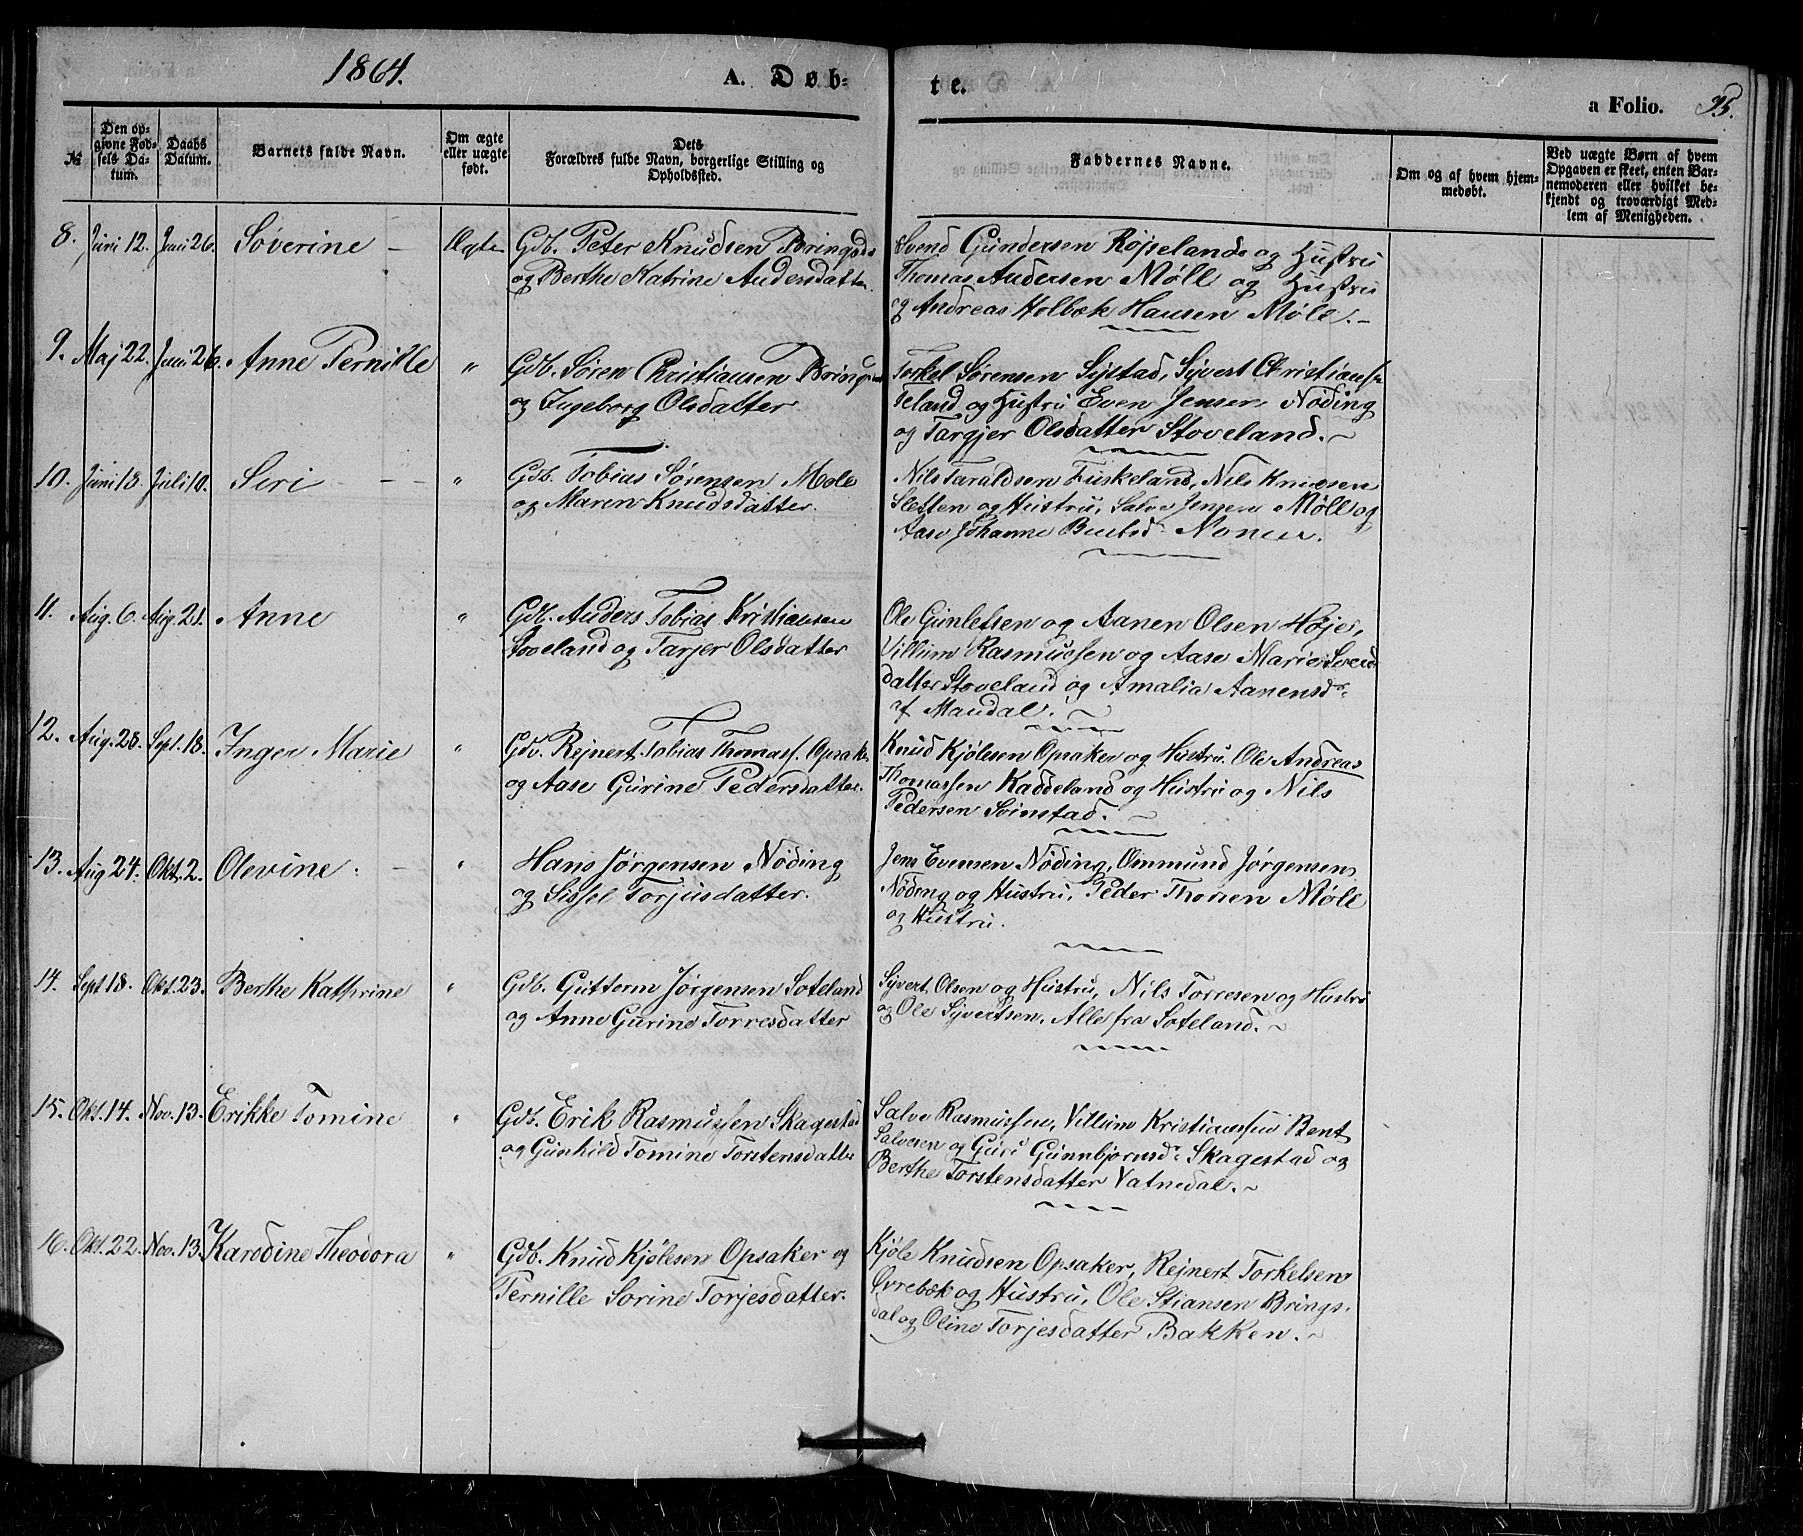 1864.
A. Døb-
te.
a Folio.
25.
№
Den op-
givne Fød-
sels Da-
tum.
Daabs
Datum.
Barnets fulde Navn.
Om ægte
eller uægte
født.
Dets
Forældres fulde Navn, borgerlige Stilling og
Opholdssted.
Faddernes Navne.
Om og af hvem hjem-
medøbt.
Ved uægte Børn af hvem
Opgaven er skeet, enten Bar-
nemoderen eller hvilket be-
kjendt og troværdigt Med-
lem af Menigheden.
8. Juni 12. Juni 26. Søverine — Ægte Gdb. Peter Knudsen Bringsd.
og Berthe Katrine Andersdatter.
Svend Gundersen Røjselands og Hustru
Thomas Andersen Möll og Hustru
og Andreas Holbæk Hansen Møle.
9. Maj 22. Juni 26. Anne Pernille " Gdb. Søren Christiansen
og Ingeborg Olsdatter.
Torkel Sørensen Sejstad, Sijvert
Teland og Hustru Even Jensen Nöding
og Targjer Olsdatter Stoveland.
10. Juni 18. Juli 10. Siri — " Gdb. Tobias Sørensen Mole
og Maren Knudsdatter.
Nils Taraldsen Fuskeland, Nils Knudsen
Sletten og Hustru, Salve Jensen Møll og
Aase Johanne
11. Aug. 6. Aug. 21. Anne " Gdb. Anders Tobias Kristiansen
Stoveland og Tarjer Olsdatter
Ole Gunletsen og Aanen Olsen Høje,
Villum Rasmussen og Aase Marie Svend
datter Stoveland og Amalia Aanensdr.
af Mandal.
12. Aug. 28. Sept. 18. Inger Marie " Gdb. Rejnert Tobias Thomass. Opsaker
og Aase Gurine Pedersdatter.
Knud Kjølesen Opsaker og Hustru. Ole Andreas
Thomassen Kaddeland og Hustru og Nils
Pedersen Svinstad.
13. Aug 24. Okt. 2. Olevine. — " Hans Jørgensen Nöding
og Sissel Torjusdatter.
Jens Evensen Nöding, Ommund Jörgensen
Nöding og Hustru, Peder Thorsen Møle
og Hustru.
14. Sept. 18. Okt. 23. Berthe Kathrine " Gdb. Guttorm Jørgensen Soteland
og Anne Gurine Torresdatter
Sijvert Olsen og Hustru, Nils Torresen og Hustru
og Ole Sijvertsen. Alle fra Soteland.
15. Okt. 14. Nov. 13. Erikke Tomine " Gdb. Erik Rasmussen Skagestad
og Gunhild Tomine Torstensdatter
Salve Rasmussen, Villum Kristianssen Bent
Salvesen og Guri Gunnbjørnsd. Skagestad og
Berthe Torstensdatter Vatnedal.
16. Okt. 22. Nov. 13. Karodine Theodora " Gdb. Knud Kjølesen Opsaker og
Pernille Sorine Torjesdatter.
Kjøle Knudsen Opsaker, Rejnert Torkelsen
Øvrebøk og Hustru, Ole Stiansen Brings-
dal og Oline Torjesdatter Bakken.